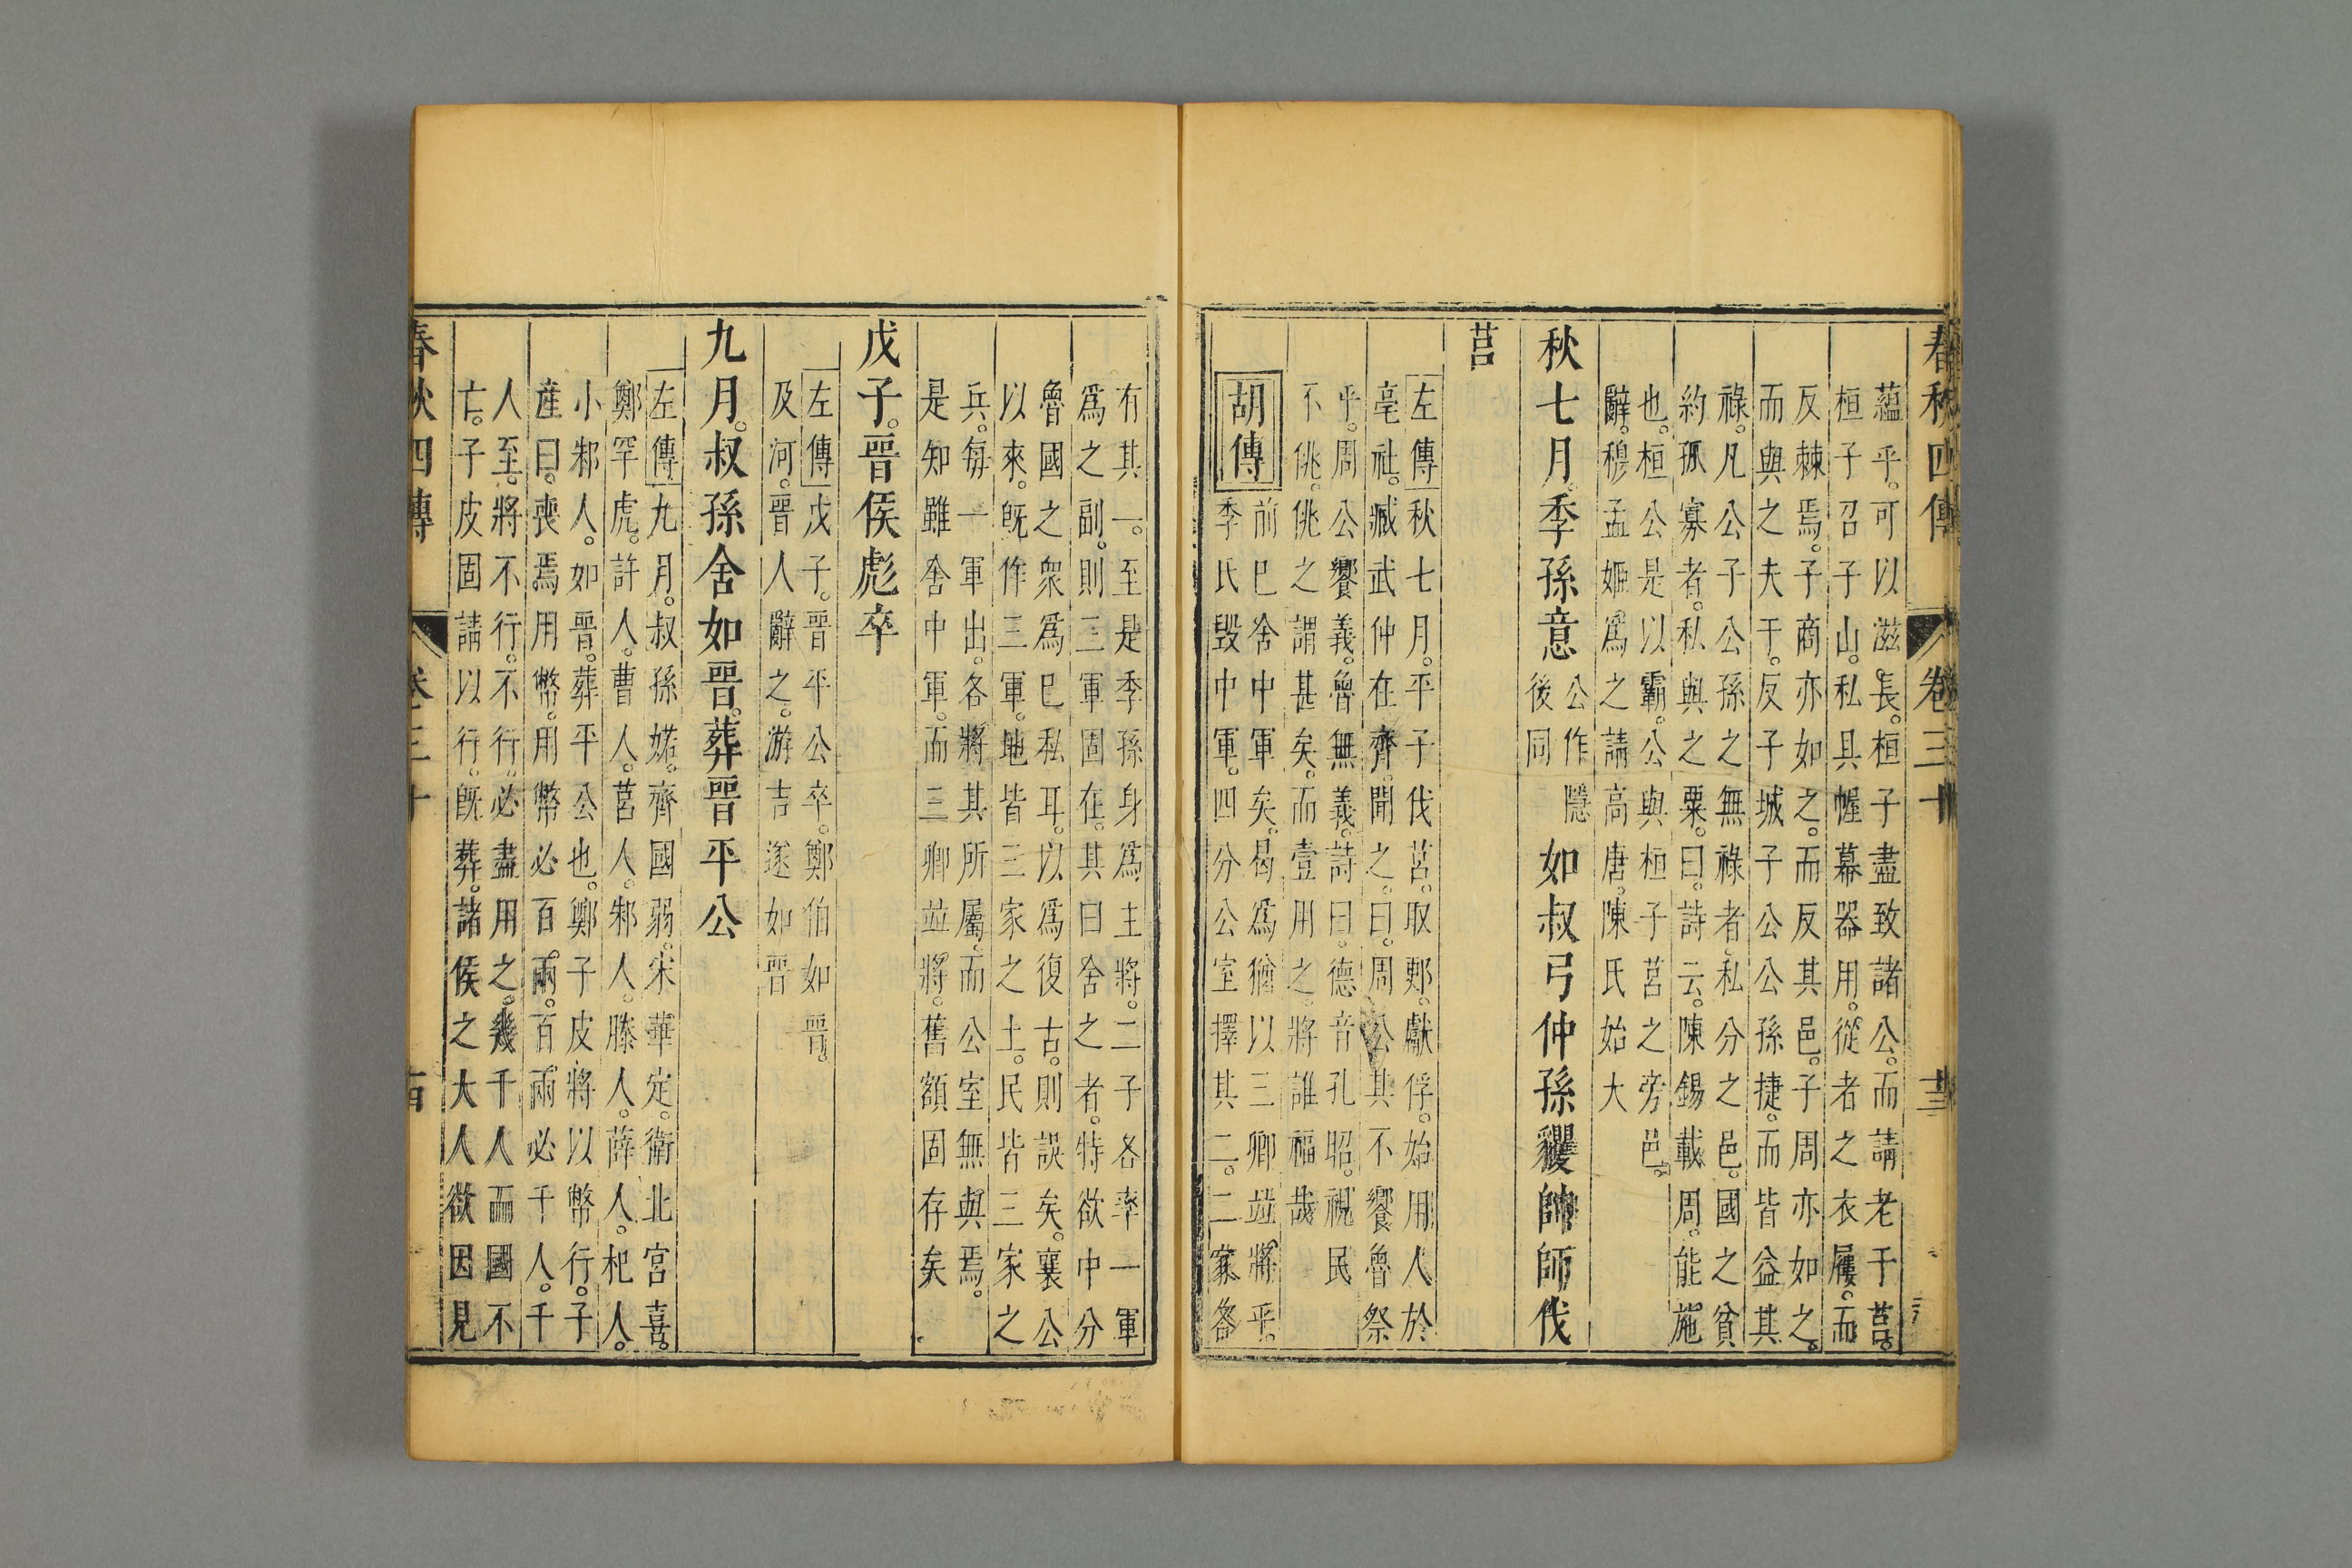 春秋四傳 卷三十 十三
蘊乎。可以滋長。桓子盡致諸公。而請老于莒。
桓子召子山。私具幄幕器用。從者之衣屨。而
反棘焉。子商亦如之。而反其邑。子周亦如之。
而與之夫于。反子城子公公孫捷。而皆益其
祿。凡公子公孫之無祿者。私分之邑。國之貧
約孤寡者。私與之粟。曰。詩云。陳錫載周。能施
也。桓公是以霸。公與桓子莒之旁邑。
辭。穆孟姬爲之請高唐。陳氏始大
秋七月。季孫意公作隱後同如叔弓仲孫貜帥師伐
莒
左傳秋七月。平子伐莒。取郠。獻俘。始用人於
亳社。臧武仲在齊。聞之。曰。周公其不饗魯祭
乎。周公饗義。魯無義。詩曰。德音孔昭。視民
不佻。佻之謂甚矣。而壹用之。將誰福哉
胡傳
前巳舍中軍矣。曷爲猶以三卿竝將乎。
季氏毀中軍。四分公室擇其二。二家各
有其一。至是季孫身爲主將。二子各率一軍
爲之副。則三軍固在。其曰舍之者。特欲中分
魯國之衆爲巳私耳。以爲復古。則誤矣。襄公
以來。旣作三軍。地皆三家之土。民皆三家之
兵。每一軍出。各將其所屬。而公室無與焉。
是知雖舍中軍。而三卿竝將。舊額固存矣
戊子。晉侯彪卒
左傳戊子。晉平公卒。鄭伯如晉。
及河。晉人辭之。游吉遂如晉
九月。叔孫舍如晉。葬晉平公
左傳九月。叔孫婼。齊國弱。宋華定。衛北宮喜。
鄭罕虎。許人。曹人。莒人。邾人。滕人。薛人。杞人。
小邾人。如晉。葬平公也。鄭子皮將以幣行。子
產曰。喪焉用幣。用幣必百兩。百兩必千人。千
人至。將不行。不行。必盡用之。幾千人而國不
亡。子皮固請以行。旣葬。諸侯之大人欲因見
春秋四傳 卷三十